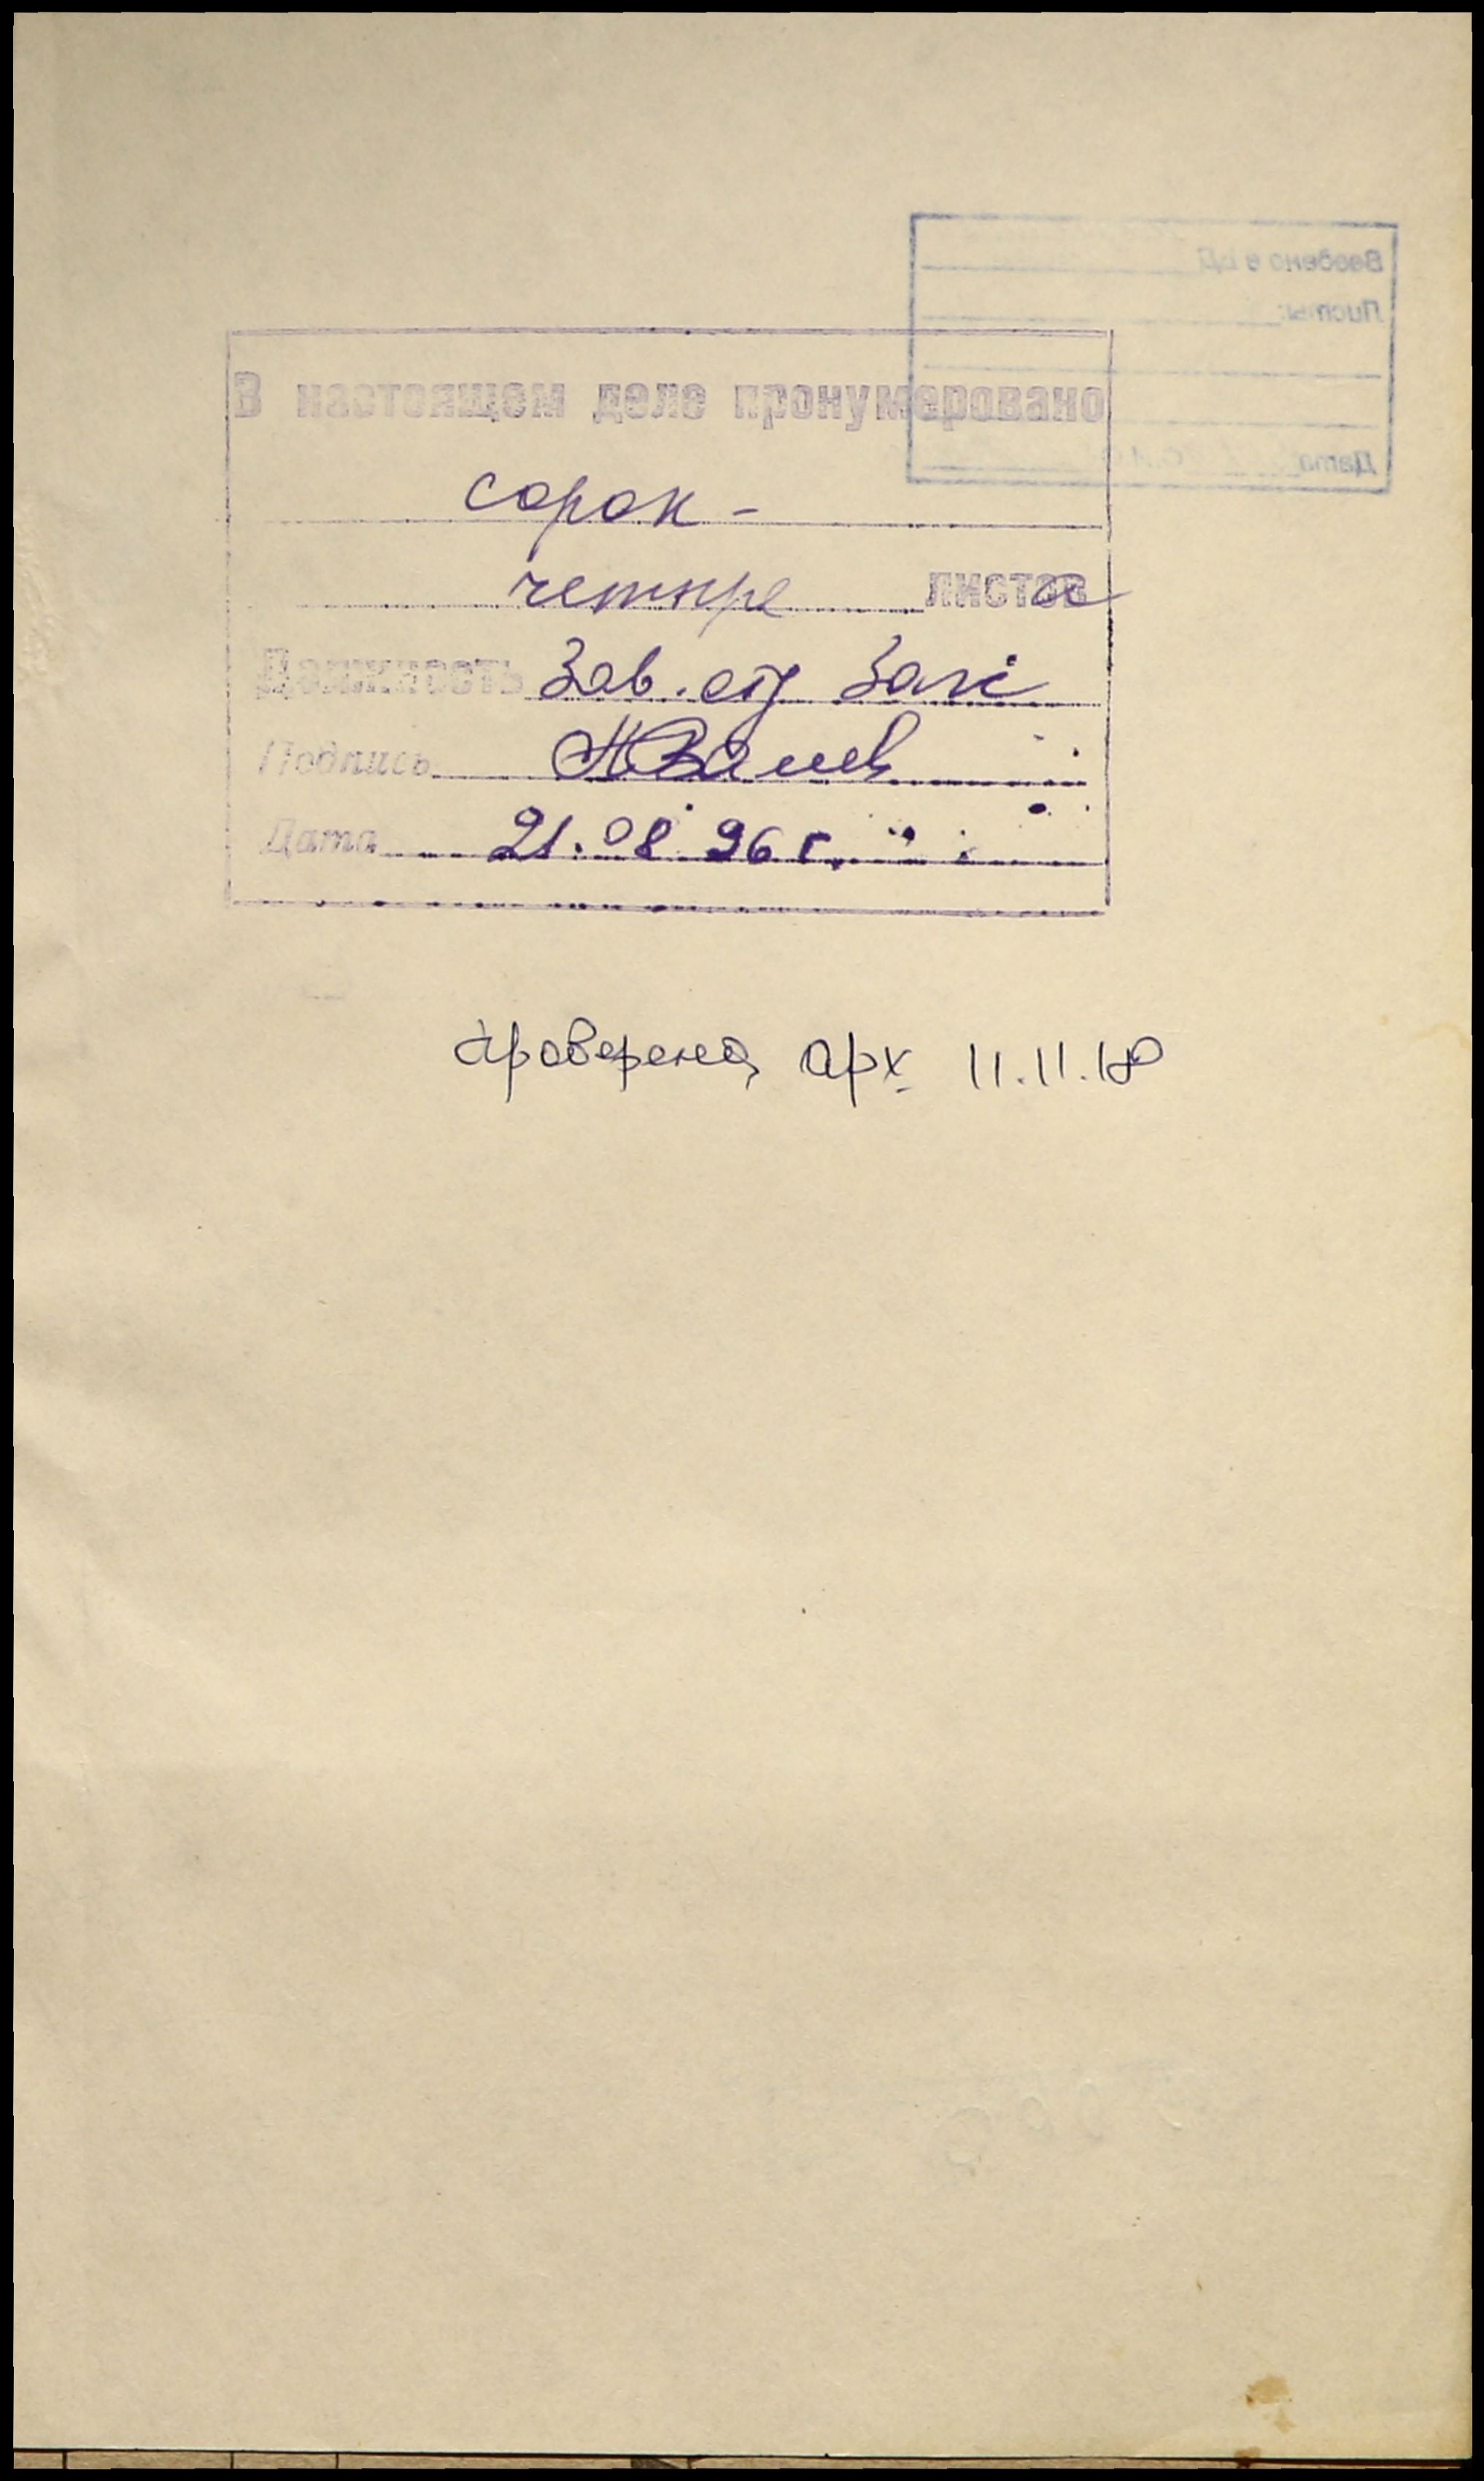 Введено в БД
Листы:
Дата
В настоящем деле пронумеровано
сорок -
четыре листа
Должность Зав. отд
Подпись
Дата 21.08 96 г.
Проверено арх. 11.11.18